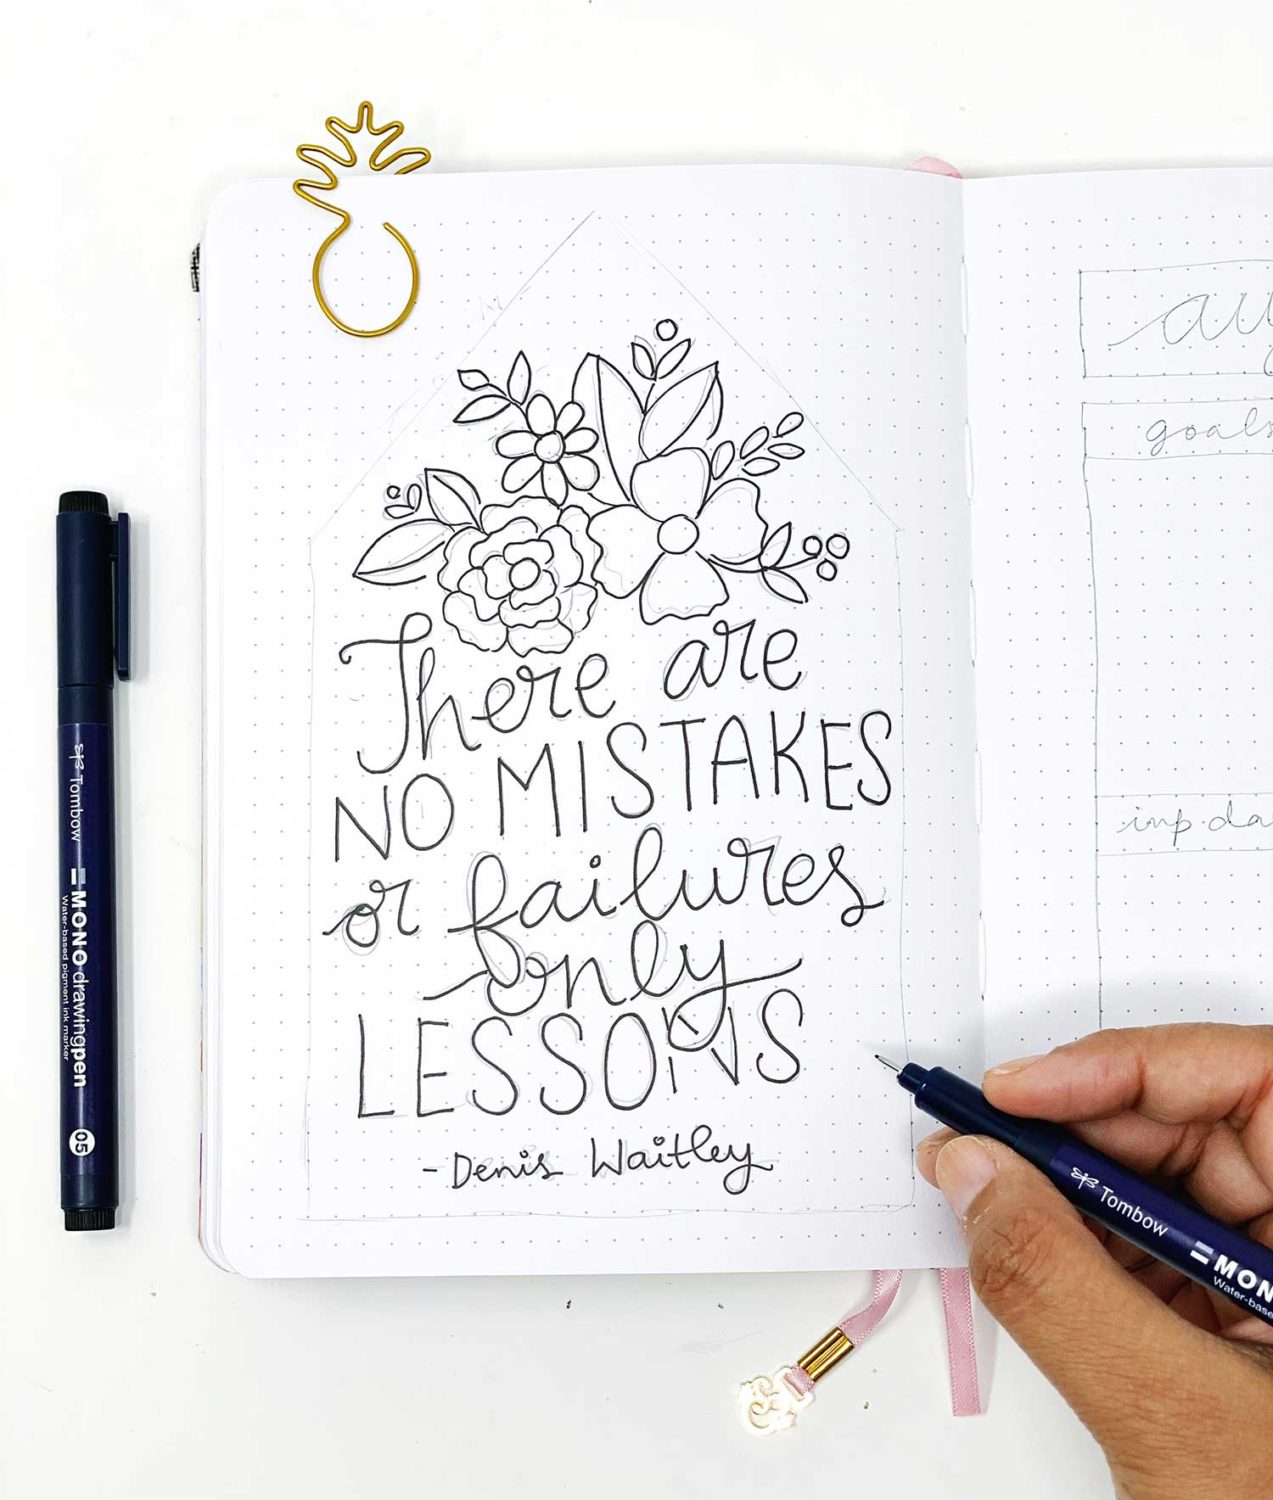 There are
NO MISTAKES
or failures
only
LESSONS
- Denis Waitley
goals
imp da
Tombow
MONO drawingpen
Water-based pigment ink marker
05
Tombow
MON
Water-base